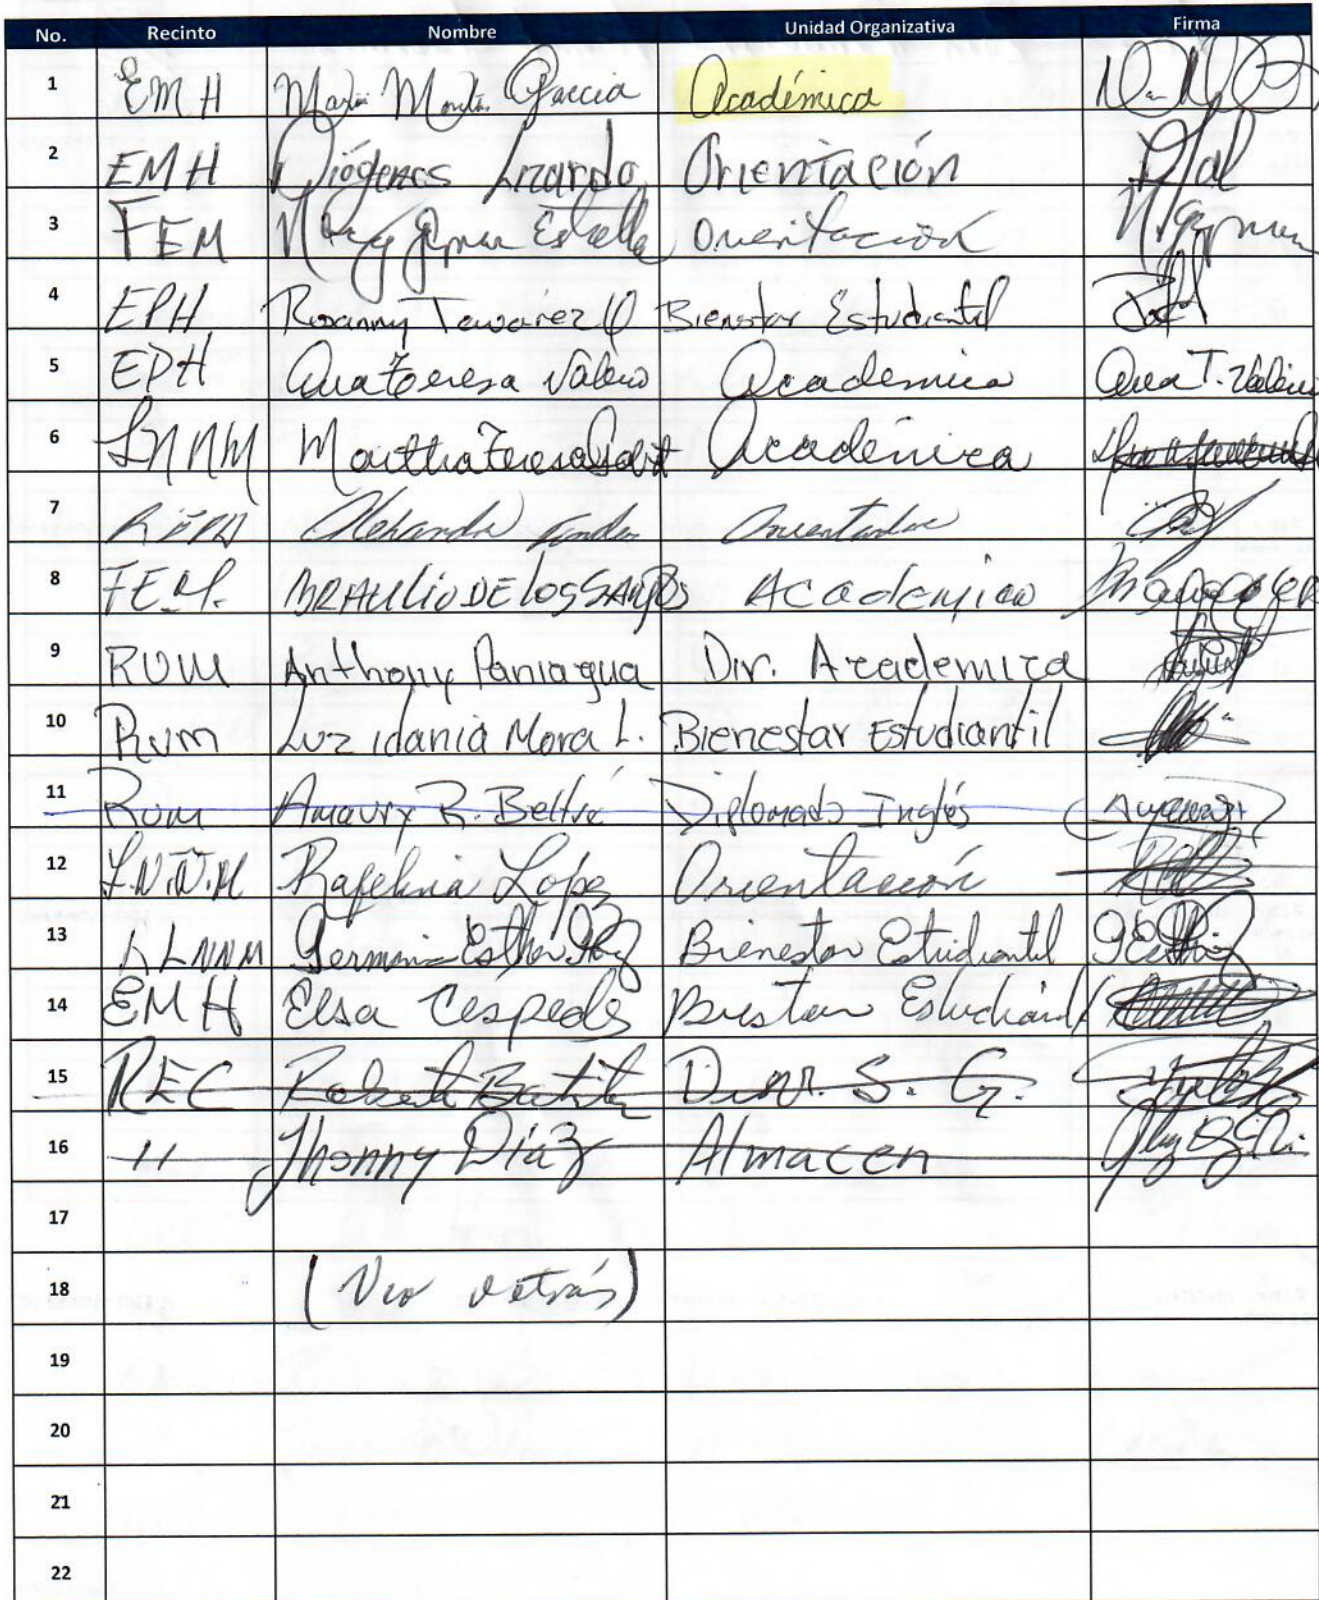 No. Recinto Nombre Unidad Organizativa Firma
1 EMH García Académica
2 EMH Diógenes Lizardo Orientación
3 FEM Estrella Orientación
4 EPH Rosanny Tavarez Q Bienestar Estudiantil
5 EPH Ana Teresa Valerio Academica Ana T. Valerio
6 LNNM Martha Teresa Académica
7 Orientador
8 F.E.M. BRAULIO DE LOS SANTOS Academico
9 RUM Anthony Paniagua Dir. Academica
10 Rum Luz idania Mora L. Bienestar Estudiantil
11 Rum Amaury R. Beltré Diplomado Inglés
12 L.N.Ñ.M Rafelina López Orientación
13 RLNNM Esther Bienestar Estudiantil
14 EMH Elsa Cespedes Estudiantil
15 REC S. G.
16 " Jhonny Díaz Almacen
17
18 (Ver detrás)
19
20
21
22